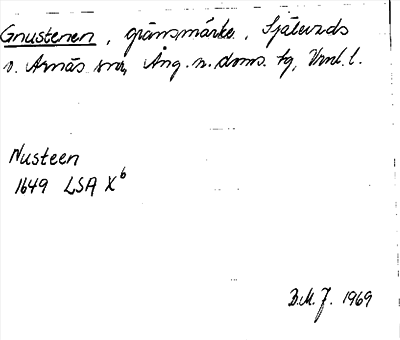 Gnustenen, gränsmärke, Själevads
o. Arnäs snr, Ång. n. doms. tg, Vnl. l.
Nusteen
1649 LSA X^b
B.M.J. 1969